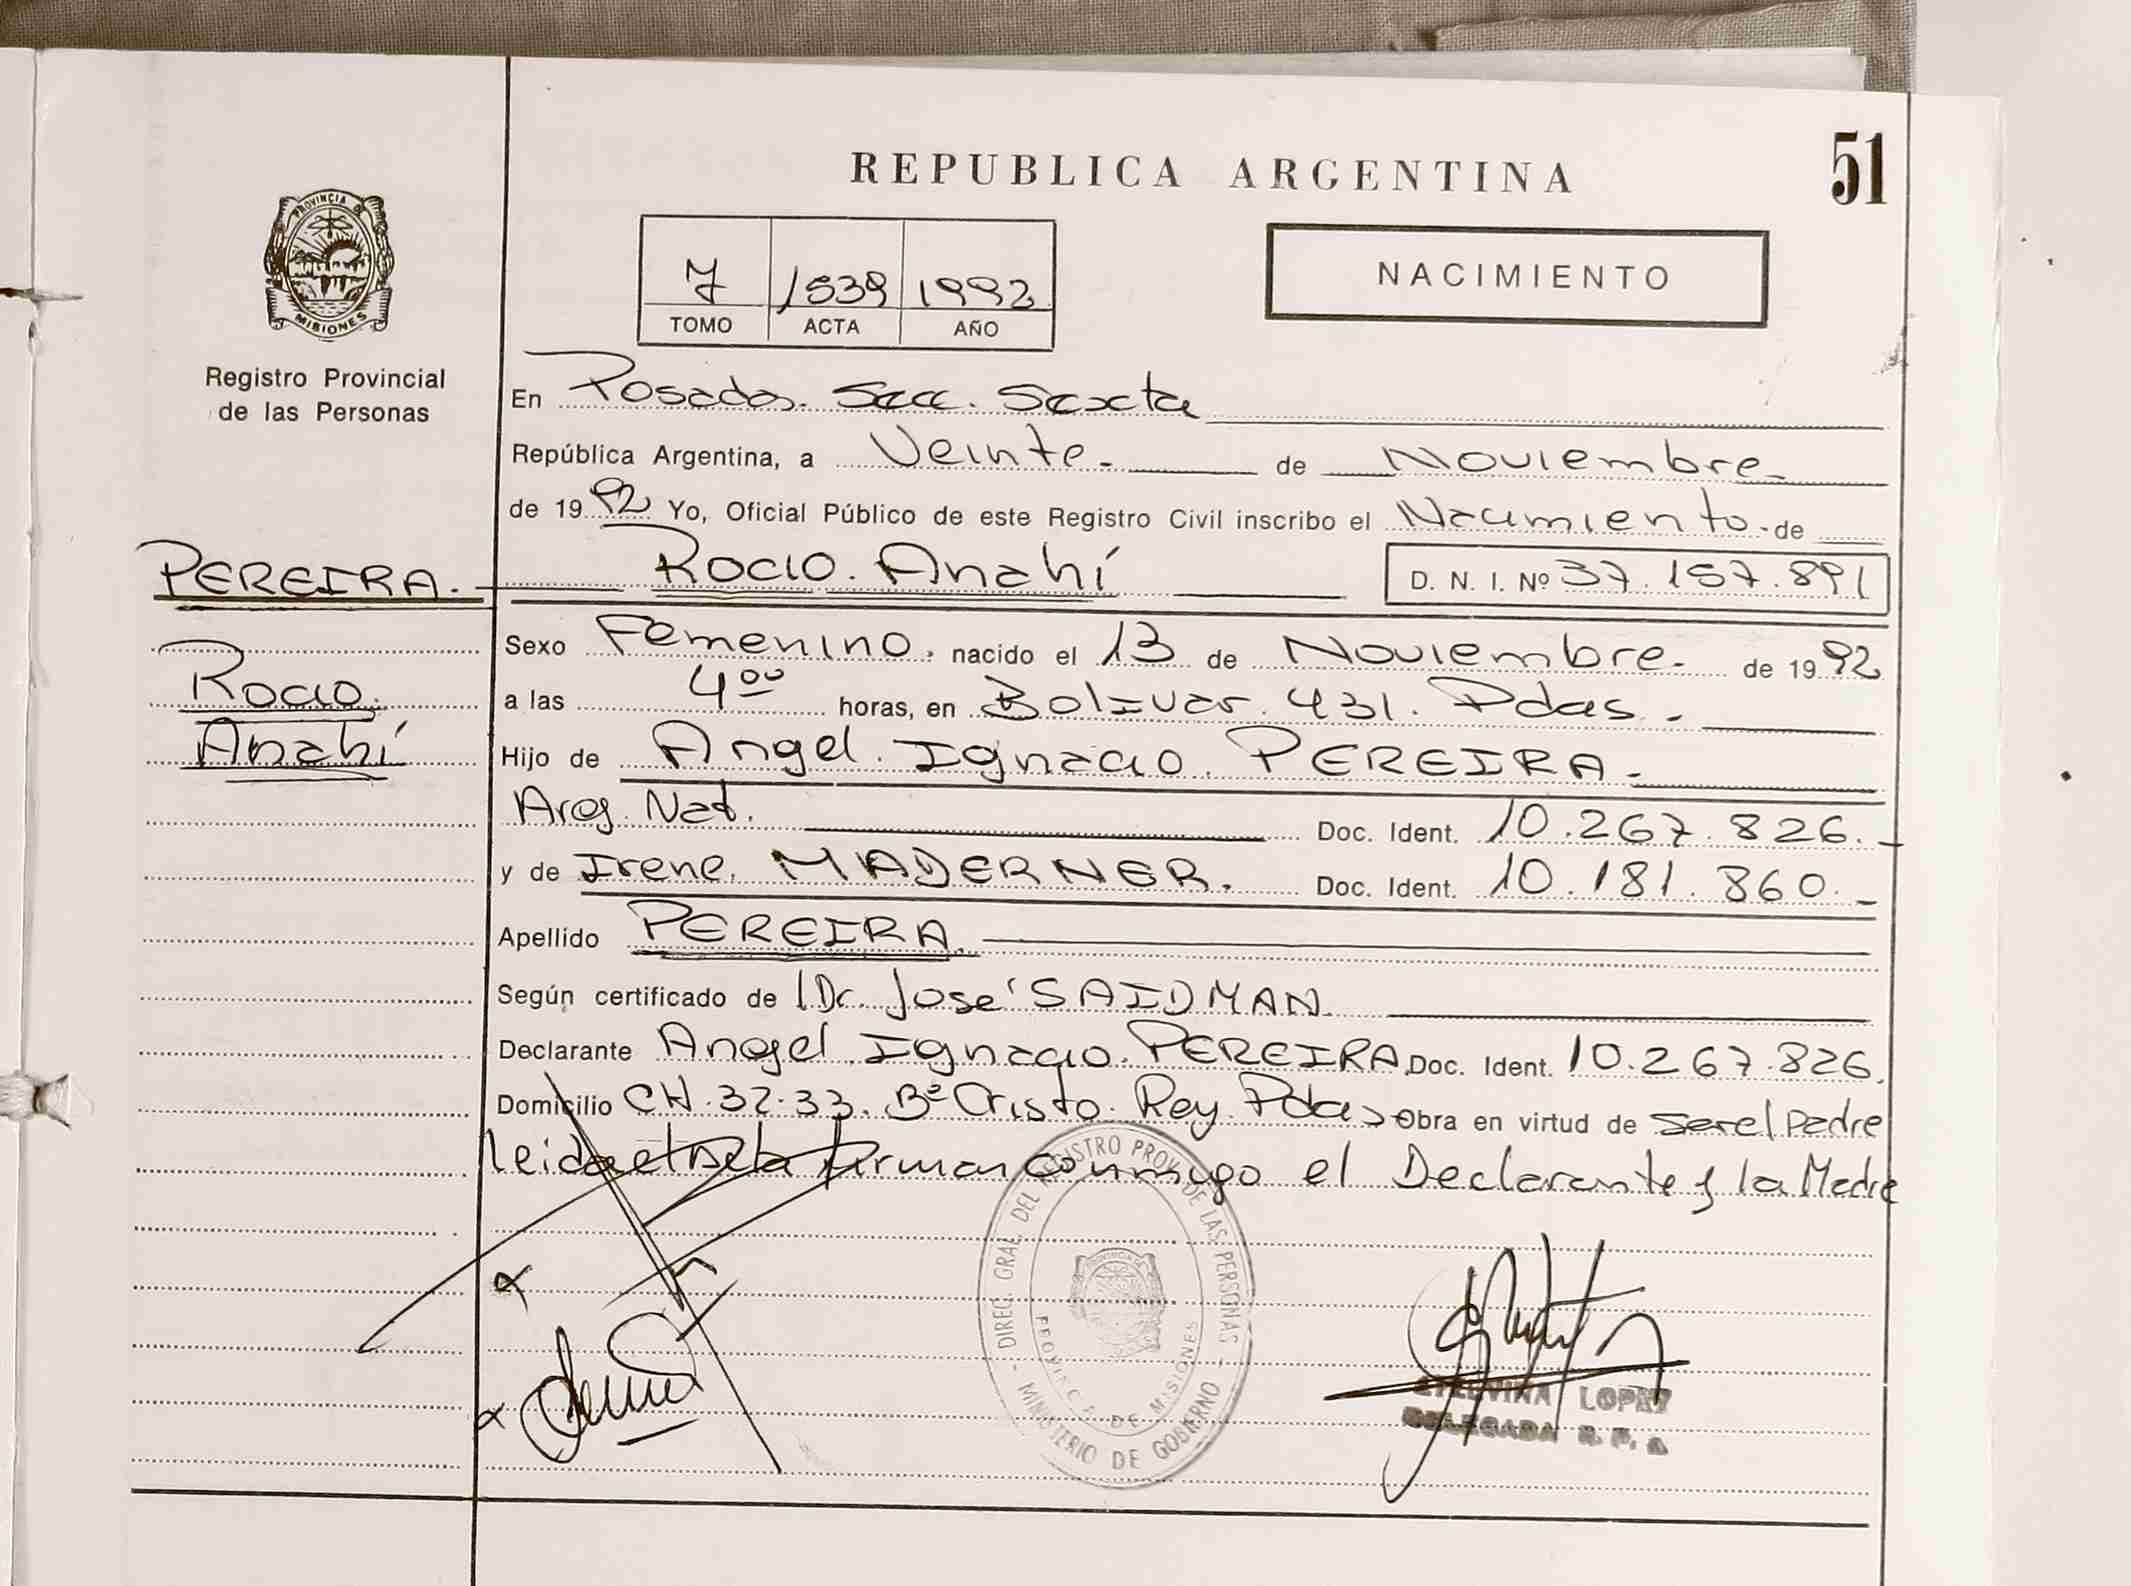 REPUBLICA ARGENTINA
51
PROVINCIA DE
MISIONES
Registro Provincial
de las Personas
1539 1992
TOMO ACTA AÑO
NACIMIENTO
En Posadas. Secc. Sexta
República Argentina, a Veinte.- de Noviembre.-
de 1992 Yo, Oficial Público de este Registro Civil inscribo el Nacimiento. de
PEREIRA.- Rocio. Anahí D. N. I. Nº 37.157.891
Rocio.
Anahí
Sexo Femenino. nacido el 13 de Noviembre.- de 1992
a las 4⁰⁰ horas, en Bolivar. 431. Pdas.-
Hijo de Angel. Ignacio. PEREIRA.-
Arg. Nat. Doc. Ident. 10.267.826.-
y de Irene. MADERNER. Doc. Ident. 10.181.860.-
Apellido PEREIRA.
Según certificado de Dr. José SAIDMAN.
Declarante Angel. Ignacio. PEREIRA. Doc. Ident. 10.267.826.
Domicilio CH. 32-33. Bº Cristo. Rey. Pdas Obra en virtud de ser el Padre
Leida el Acta firman conmigo el Declarante y la Madre
DIREC. GRAL. DEL REGISTRO PROV. DE LAS PERSONAS
PROVINCIA DE MISIONES
MINISTERIO DE GOBIERNO
LOPEZ
DELEGADA R. P.